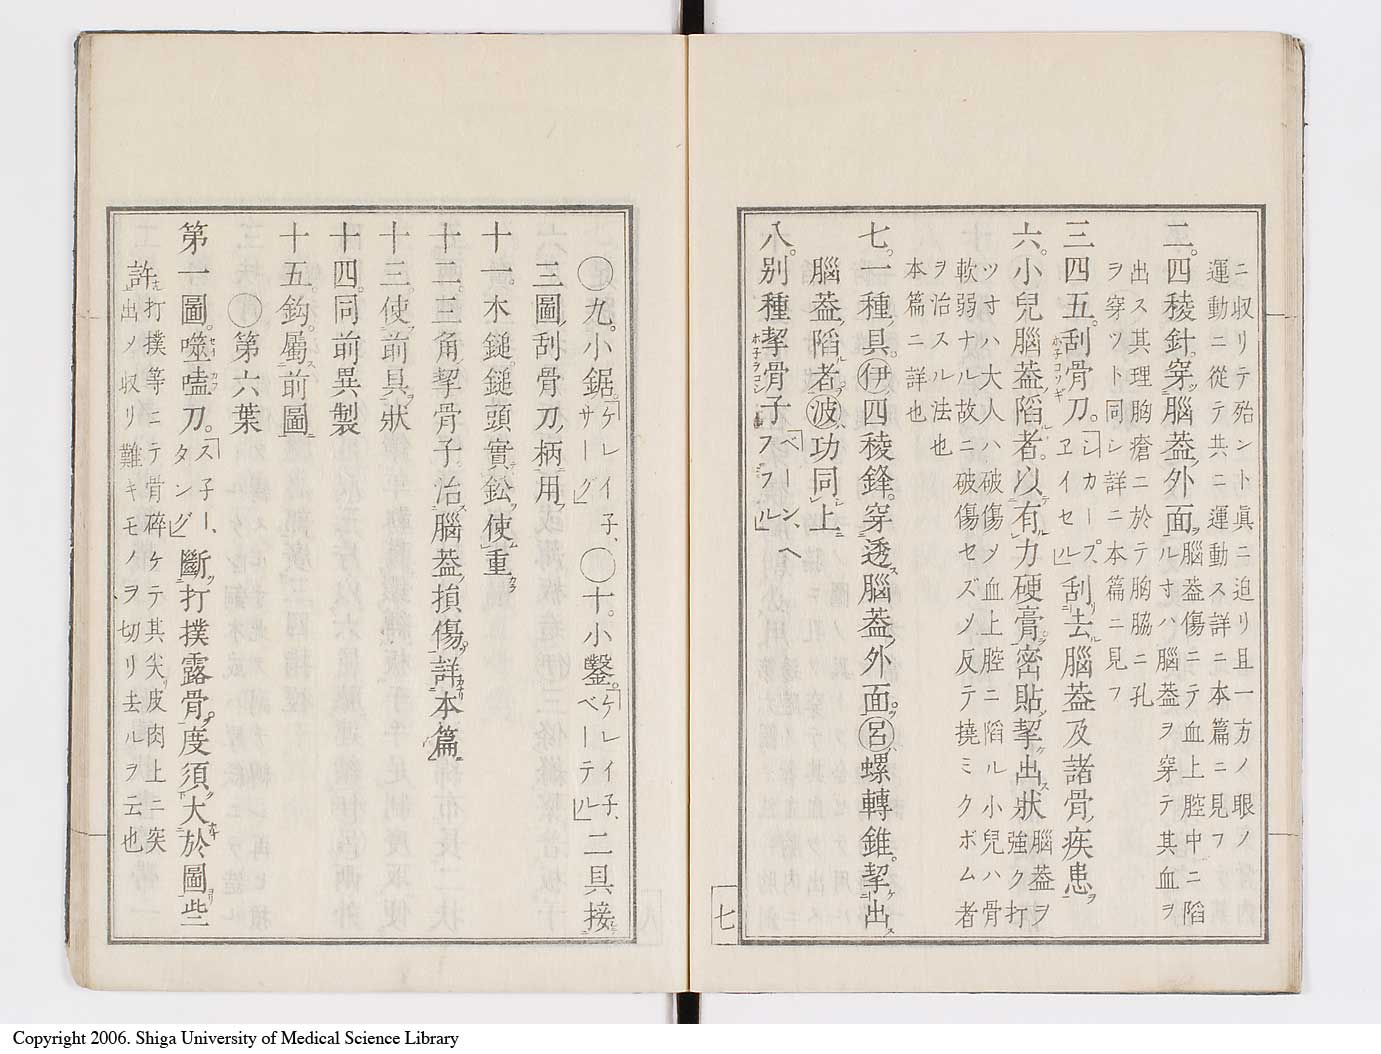 ニ収リテ殆ント眞ニ迫リ且一方ノ眼ノ
運動ニ從テ共ニ運動ス詳ニ本篇ニ見フ
二。四稜針。穿腦蓋外面 腦蓋傷ニテ血上腔中ニ陷
ルヿハ腦蓋ヲ穿テ其血ヲ
出ス其理胸瘡ニ於テ胸脇ニ孔
ヲ穿ツト同シ詳ニ本篇ニ見フ
三四五。刮骨刀。「シカープ、
ヱイセル」刮去腦蓋及諸骨疾患
六。小兒腦蓋陷者。以有力硬膏密貼挈出狀 腦蓋ヲ
強ク打
ツヿハ大人ハ破傷ソ血上腔ニ陷ル小兒ハ骨
軟弱ナル故ニ破傷セズノ反テ撓ミクボム者
ヲ治スル法也
本篇ニ詳也
七。一種具。伊四稜鋒。穿透腦蓋外面。呂螺轉錐。挈出
腦蓋陷者波功同上
八。別種挈骨子「ベーン、ヘ
フフル」
七
九。小鋸。「ケレイ子、
サーグ」十。小鑿。「ケレイ子、
ベーテル」二具接
三圖刮骨刀柄用
十一。木鎚鎚頭實鈆使重
十二。三角挈骨子治腦蓋損傷詳本篇
十三。使前具狀
十四。同前異製
十五。鈎。屬前圖
第六葉
第一圖。噬嗑刀。「ス子ー、
タング」斷打撲露骨。度須大於圖些
許 打撲等ニテ骨碎ケテ其尖皮肉上ニ突
出ノ収リ難キモノヲ切リ去ルヲ云也
Copyright 2006. Shiga University of Medical Science Library